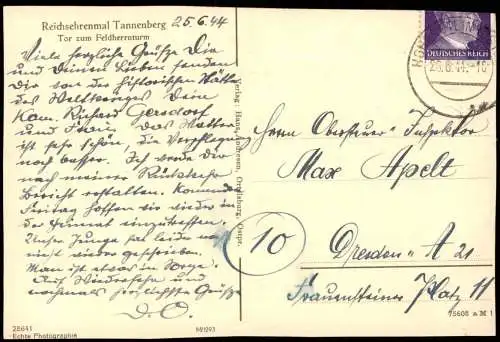 Reichsehrenmal Tannenberg 25.6.44
Tor zum Feldherrnturm
Viele herzliche Grüße Dir
und Deinen Lieben senden
Dir von der historischen Stätte
des Weltkrieges Dein
Kam. Richard Gersdorf
und Frau. Das Wetter
ist sehr schön, die Verpfleg.
noch besser. Ich werde dir
nach meiner Rückkehr
Bericht erstatten. Kommenden
Freitag hoffen wir wieder in
der Heimat einzutreffen.
Unser Junge hat leider noch
nicht wieder geschrieben.
Man ist etwas in Sorge.
Auf Wiedersehn und
nochmals herzlichste Grüße
D. O.
28641
Echte Photographie
M1293
Verlag: Ortelsburg, Ostpr.
DEUTSCHES REICH
26.6.44.-10
Herrn Obersteuer Inspektor
Max Apelt
10
Dresden A 21
Frauensteiner Platz 11
75608 a M 1